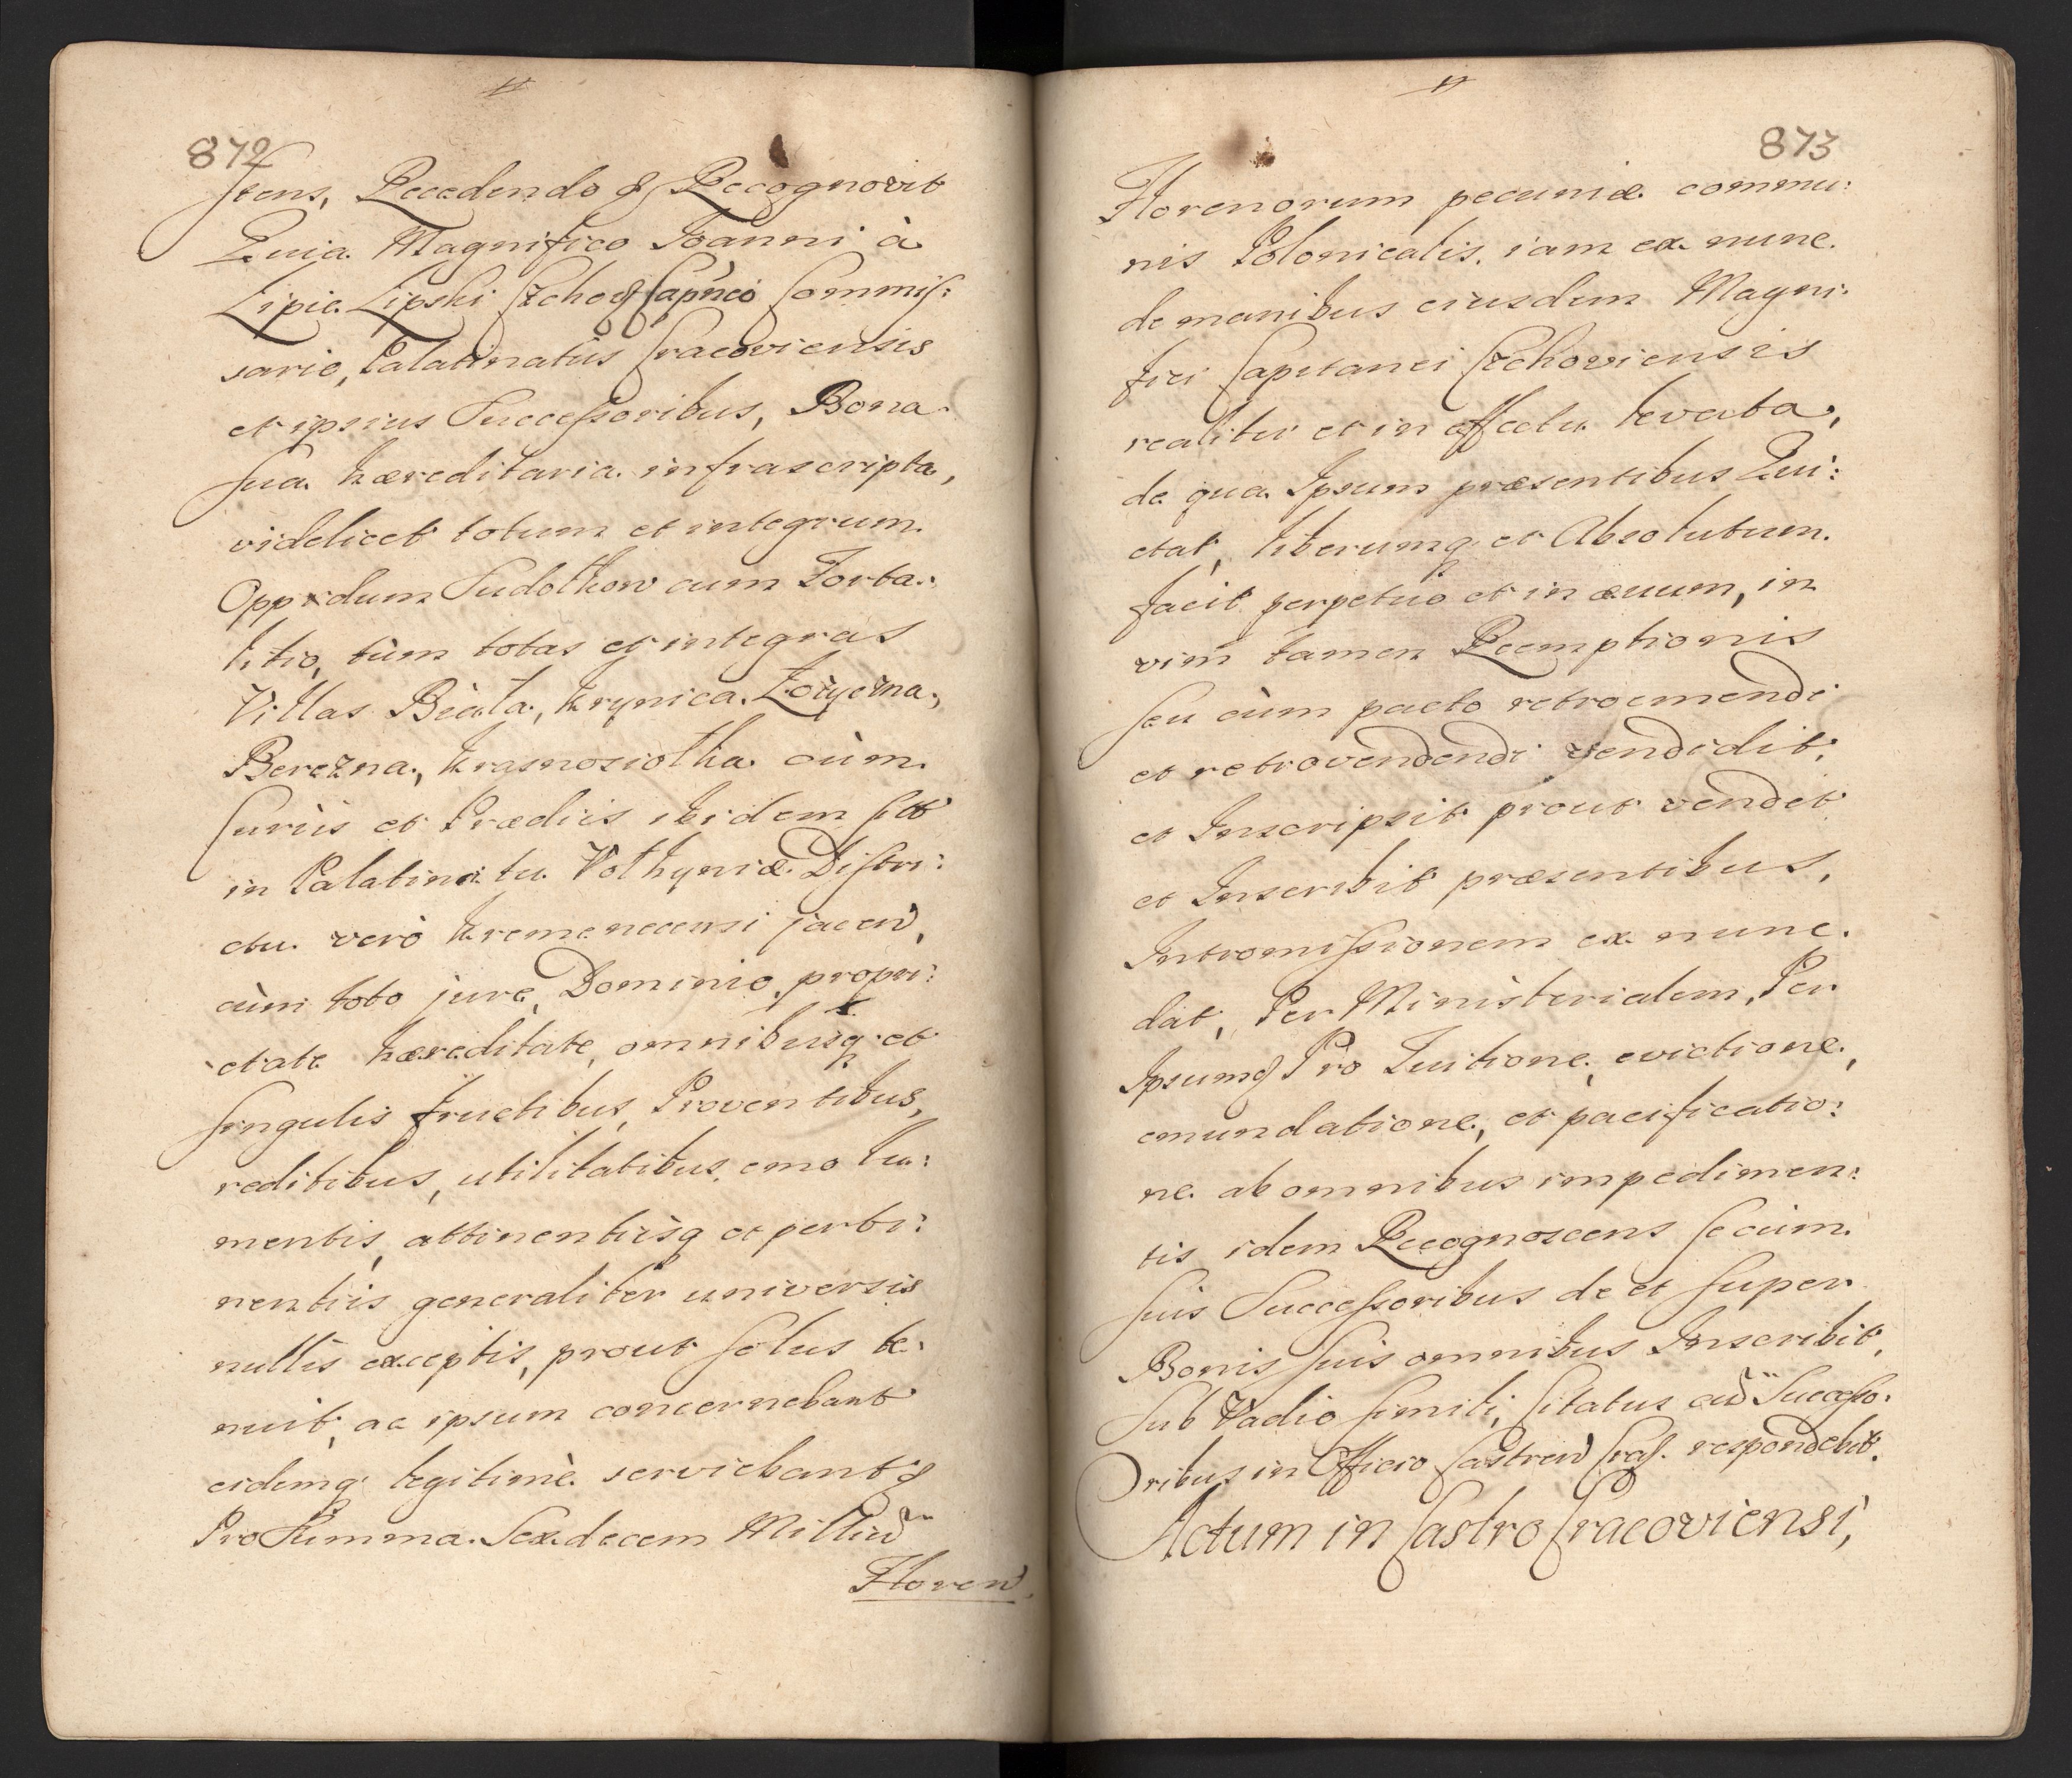 872
Jtens, Recedendo & Recognovit
Quia Magnifico Joanni à
Lipie Lipski Czchoꝸ Capneo Commis:
sario, Palatinatus Cracoviensis
et ipsius Successoribus, Bona
sua hæreditaria infrascripta,
videlicet totum et integrum
Oppidum Sudołkow cum Forta:
litio, tùm totas et integras
Villas Biała, Krynica, Łozyczna,
Berezna, Krasnosiołka cùm
Curiis et Prædiis ibidem sitt
in Palatinatu Volhyniæ Distri:
ctu verò Kremenecensi jacen,
cùm toto jure, Dominio, propri:
etate hæreditate, omnibusq et
singulis fructibus, Proventibus,
reditibus, utilitatibus, emolu:
mentis, attinentiisq et perti:
nentiis generaliter universis
nullis exceptis, prout solus te:
nuit, ac ipsum concernebant
eidemq legitimè serviebantꝗ
Pro Summa Sexdecem Milliu
Floren,
873
Florenorum pecuniæ commu:
nis Polonicalis, iam ex nunc
de manibus eiusdem Magni:
fici Capitanei Czchoviensis
realiter et in effectu levata,
de qua Ipsum præsentibus Qui:
etat, liberumq et Absolutum
facit perpetuo et in ævum, in
vim tamen Reemptionis
seu cùm pacto retroemendi
et retrovendendi vendidit,
et Inscripsit prout vendit
et Inscribit præsentibus,
Intromissionem ex nunc
dat, Per Ministerialem, Per
Ipsumꝗ Pro Tuitione, evictione,
emundatione, et pacificatio:
ne ab omnibus impedimen:
tis idem Recognoscens se cùm
suis Successoribus de et super
Bonis suis omnibus Inscribit,
Sub Vadio simili, Citatus cu Successo:
ribus in Officio Castren Cras. respondebit.
Actum in Castro Cracoviensi,